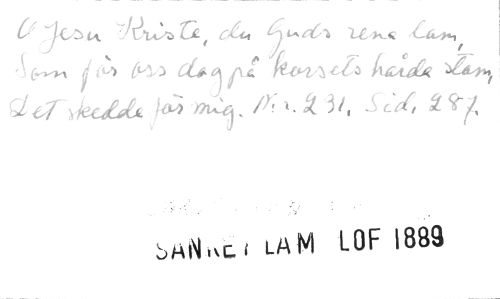 O Jesu Kriste, du Guds rena lam,
Som för oss dog på korsets hårda stam,
Det skedde för mig. N:r. 231. Sid. 287.
SANKEY LAM LOF 1889